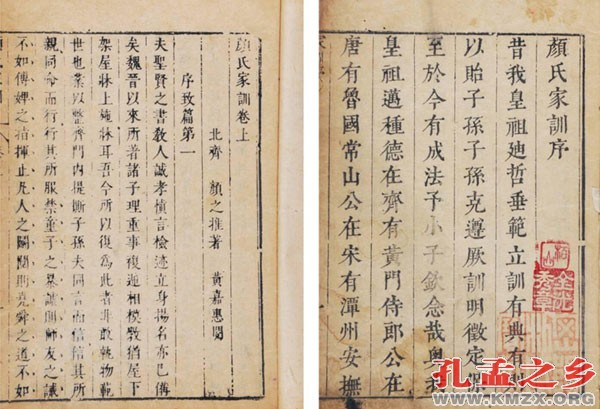 顏氏家訓序
昔我皇祖廸哲垂範立訓有典有則
以貽子孫子孫克遵厥訓明徵定保
至於今有成法予小子欽念哉粵我
皇祖邁種德在齊有黃門侍郎公在
唐有魯國常山公在宋有潭州安撫
顏氏家訓卷上
北齊 顏之推著 黃嘉惠閱
序致篇第一
夫聖賢之書教人誠孝慎言檢迹立身揚名亦已備
矣魏晉以來所著諸子理重事複遞相模斆猶屋下
架屋牀上施牀耳吾今所以復為此者非敢軌物範
世也業以整齊門內提撕子孫夫同言而信信其所
親同命而行行其所服禁童子之暴謔則師友之誡
不如傅婢之指揮止凡人之鬭鬩則堯舜之道不如
孔孟之乡
WWW.KMZX.ORG